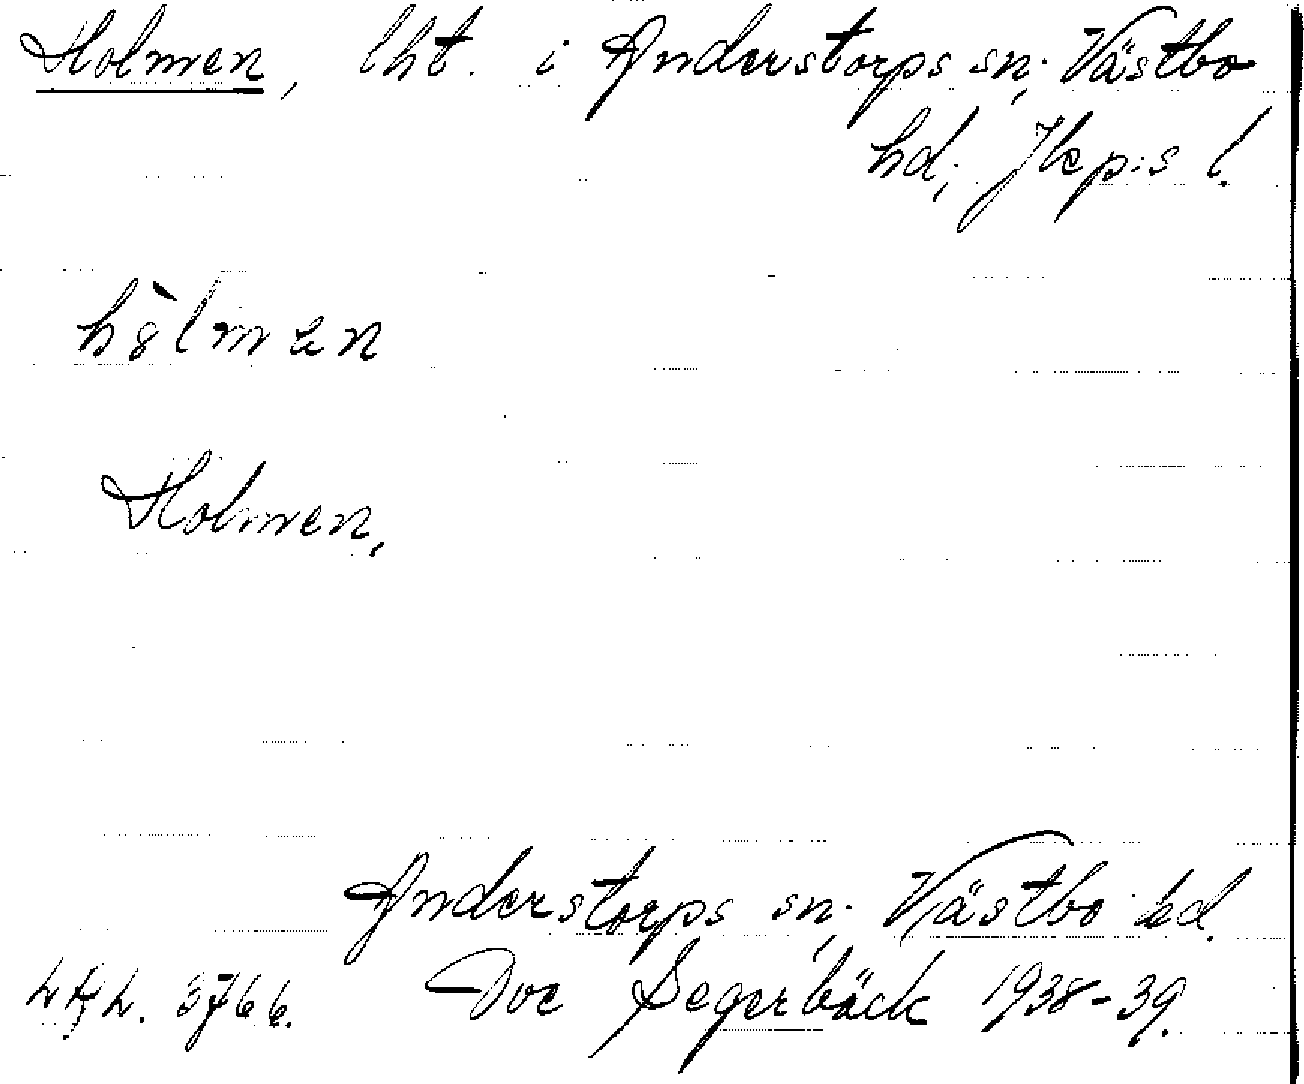 Holmen, lht. i Anderstorps sn; Västbo
hd; Jkp:s l.
Holmen,
Anderstorps sn; Västbo hd.
3766. Ove Segerbäck 1938-39.